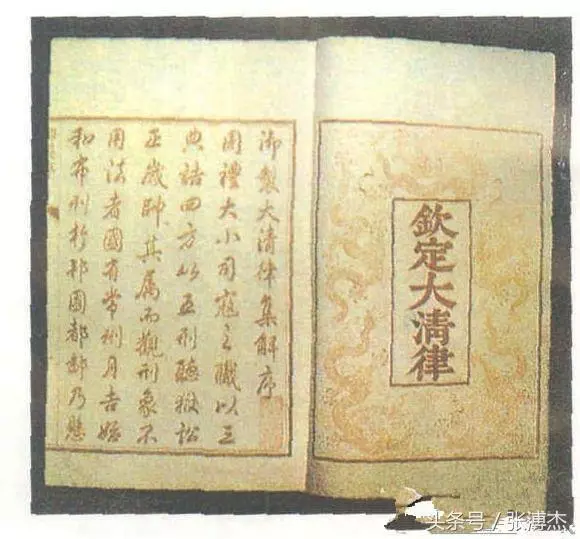 欽定大清律
御製大清律集解序
周禮大小司寇之職以三
典詰四方以五刑聽獄訟
正歲帥其属而觀刑象不
用法者國有常刑月吉始
和布刑於邦國都鄙乃懸
头条号 / 张溥杰